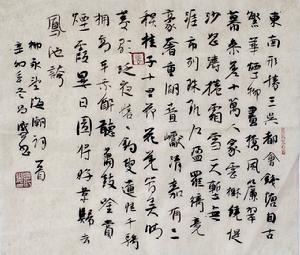 東南形勝三吳都會錢塘自古
繁華煙柳畫橋風簾翠
幕參差十萬人家雲樹繞堤
沙怒濤捲霜雪天塹無
涯市列珠璣戶盈羅綺競
豪奢重湖疊巘清嘉有三
秋桂子十里荷花羌管弄晴
菱歌泛夜嬉嬉釣叟蓮娃千騎
擁高牙乘醉聽簫鼓吟賞
煙霞異日圖將好景歸去
鳳池誇
柳永望海潮詞一首
辛卯季冬